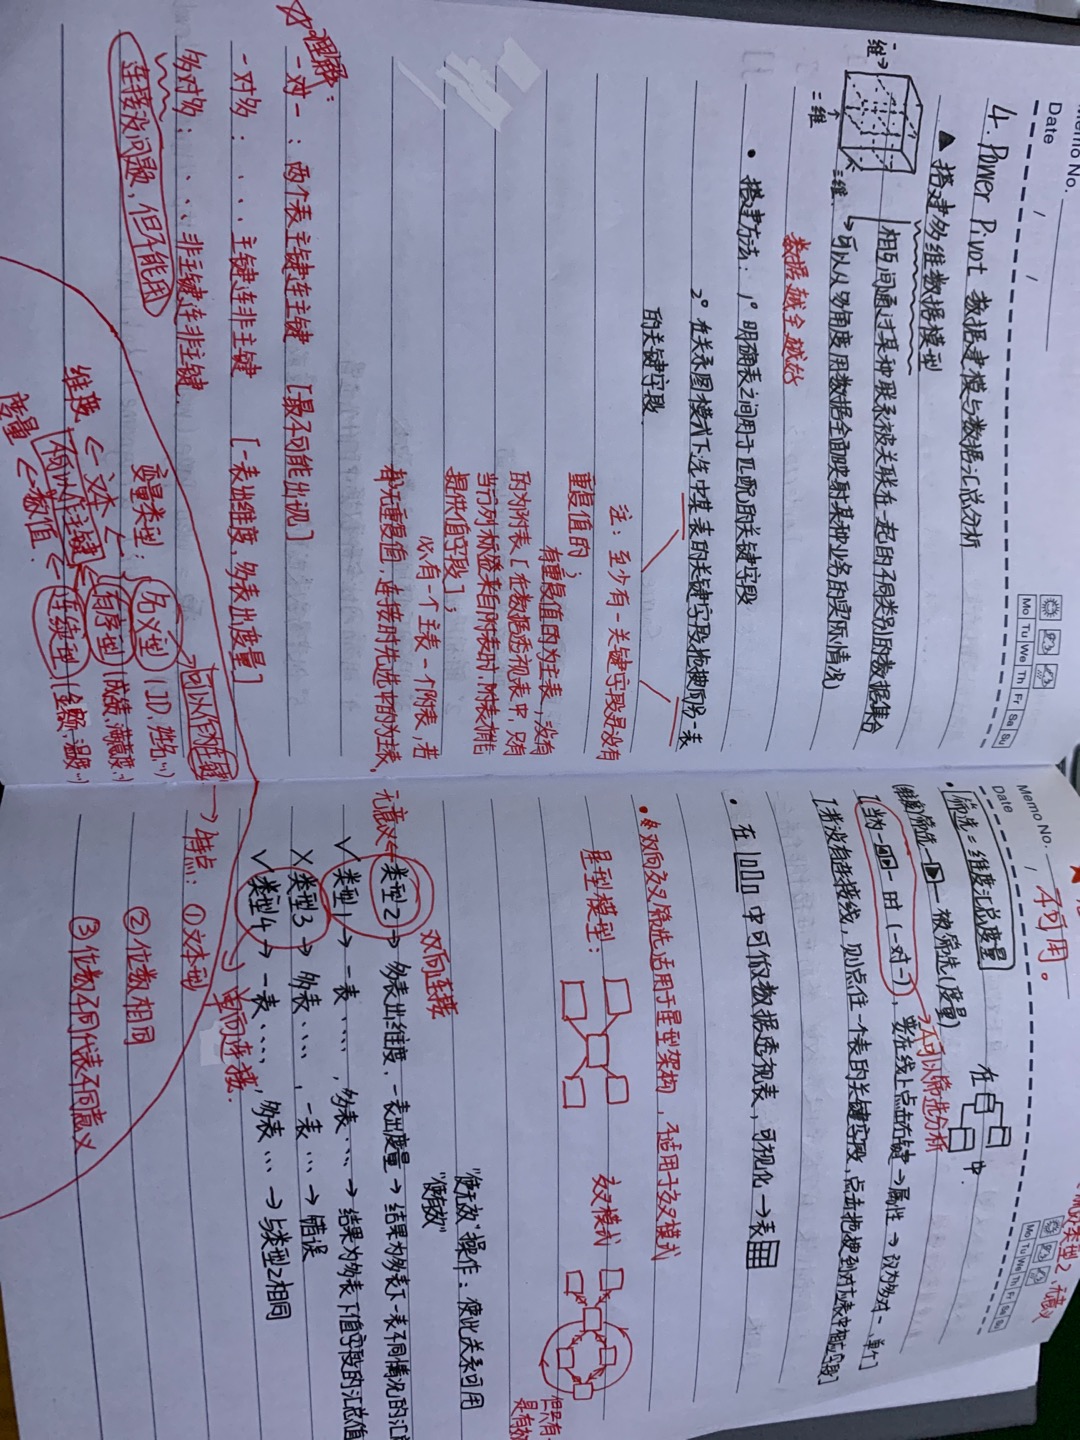 Memo No.
Date / /
Mo Tu We Th Fr Sa Su
4. Power Pivot 数据建模与数据汇总分析
▲ 搭建多维数据模型
相互间通过某种联系被关联在一起的不同类别的数据集合
→可以从多角度用数据全面映射某种业务的实际情况
一维→
二维
三维
数据越全越好
• 搭建方法: 1° 明确表之间用于匹配的关键字段
2° 在关系图模式下选中某表的关键字段拖拽到另一表
的关键字段
注: 至少有一关键字段是没有
重复值的;
有重复值的为主表,没有
的为附表[在数据透视表中,只有
当行列标签来自附表时,附表才能
提供值字段];
必有一个主表一个附表,若
都无重复值,连接时先选中的为主表。
理解:
一对一: 两个表主键连主键 [最不可能出现]
一对多: . . . 主键连非主键 [一表出维度,多表出度量]
多对多: . . . 非主键连非主键
连接没问题,但不能用
变量类型: 名义型 (ID、姓名..)
维度 ← 文本 ← 有序型 (成绩、满意度..)
不可以作主键
度量 ← 数值 ← 连续型 (金额、温度..)
可以作主键 → 特点: ①文本型
②位数相同
③位数不同代表不同意义
Memo No.
Date /
Mo Tu We Th Fr Sa Su
不可用。
类型2,无意义
• 筛选=维度汇总度量
(维度)筛选 → 被筛选(度量)
在 中
可以筛选分析
[当为 一时(一对一),要在线上点击右键→属性→改为多对一,单个]
[若没有连接线,则点住一个表的关键字段,点击拖拽到对应表中相应字段]
• 在 中可做数据透视表,可视化→表
• 双向交叉筛选适用于星型架构,不适用于交叉模式
星型模型:
交叉模式
但只有一
是有效
双向连接
"使无效"操作: 使此关系可用
"使有效"
无意义← 类型2 → 多表出维度,一表出度量 → 结果为多表下一表不同情况的汇总
√ 类型1 → 一表...,多表... → 结果为多表下值字段的汇总值
× 类型3 → 多表...,一表... → 错误
√ 类型4 → 一表...,多表... → 与类型2相同
单向连接.